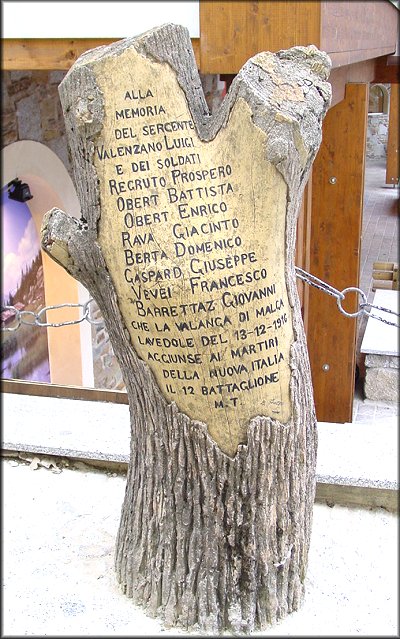 ALLA
MEMORIA
DEL SERGENTE
VALENZANO LUIGI
E DEI SOLDATI
REGRUTO PROSPERO
OBERT BATTISTA
OBERT ENRICO
RAVA GIACINTO
BERTA DOMENICO
GASPARD GIUSEPPE
JEVEI FRANCESCO
BARRETTAZ GIOVANNI
CHE LA VALANGA DI MALGA
LAVEDOLE DEL 13-12-1916
AGGIUNSE AI MARTIRI
DELLA NUOVA ITALIA
IL 12 BATTAGLIONE
M.T.